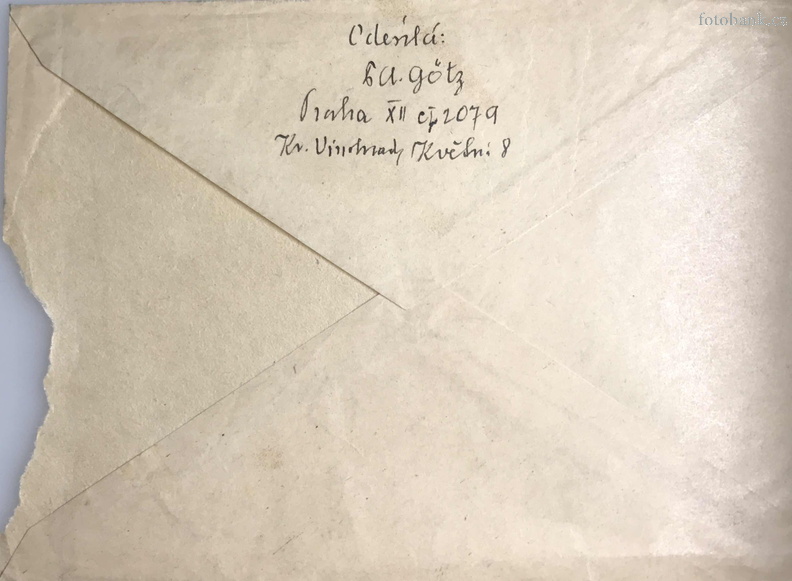 fotobanka.cz
Odesílá:
Götz
Praha XII čp 2079
Kr. Vinohrady Květní 8